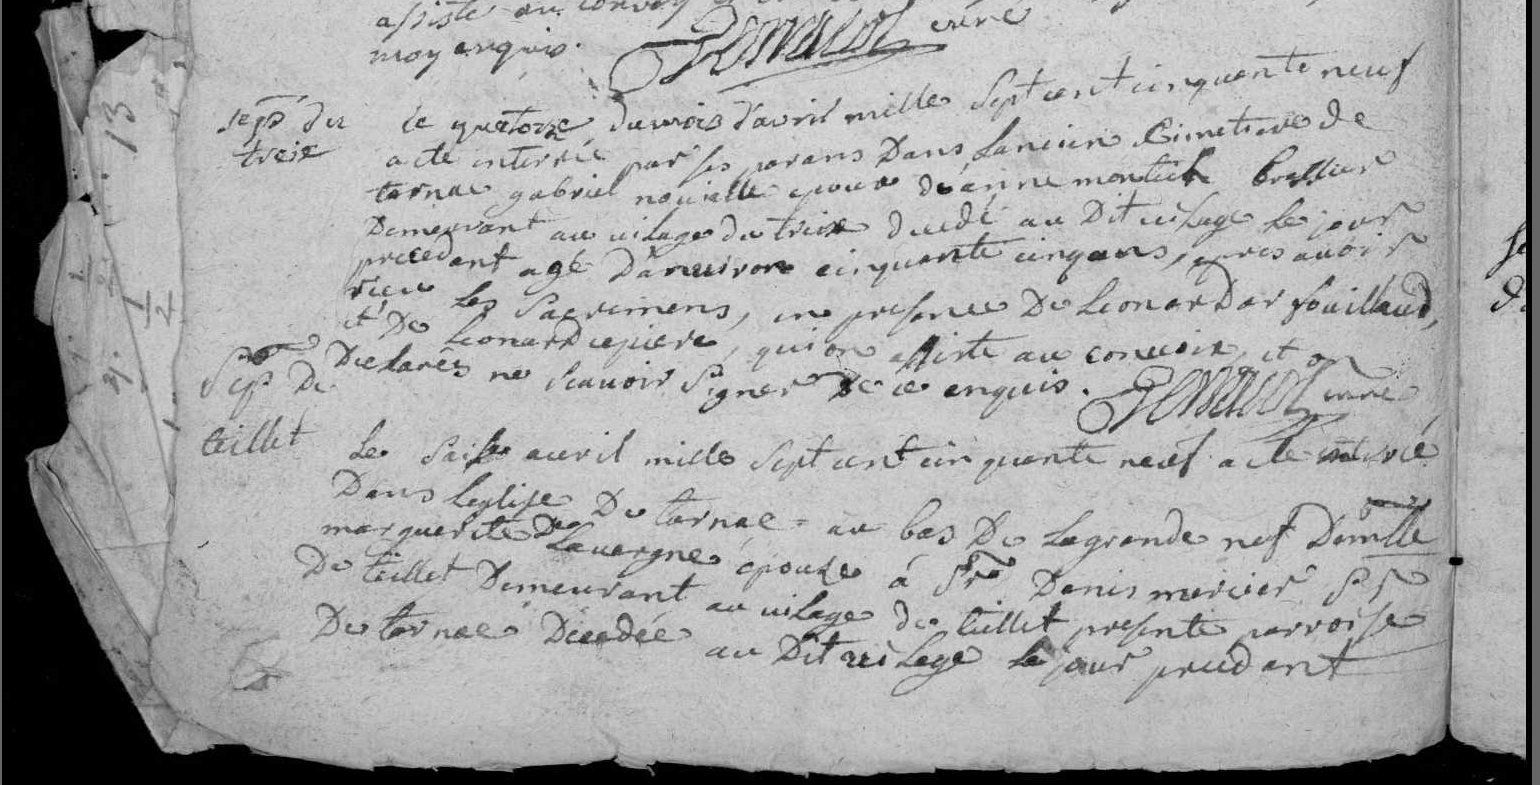 assiste au convoy
moy enquis. curé
sep^re du
treix
le quatorze du mois d'avril mille sept cent cinquante neuf
a eté interrée par ses parans Dans Lancien Cimetiere de
tarnac gabriel nouialle epoux de anne monteih brassier
Demeurant au uilage du treix decedé au Dit uilage le jour
precedant agé Danuiron cinquante cinq ans, apres auoir
recu les Sacremens, en presence De Leonard Darfouillaud,
et De Leonard
qui on assiste au conuoix, et on
Declarés ne scauoir signer De ce enquis. curé
Sep^re De
teillet
Le saise auril mille sept cent cinquante neuf a eté interré
Dans leglise De tarnac au bas De la grande nef Demlle
marguerite De Lauergne epouze á S^r Denis mercier S^r
De teillet Demeurant au uilage de teillet presente parroisse
De tarnac Decedée au Dit uilage le jour precedant
13
1/2